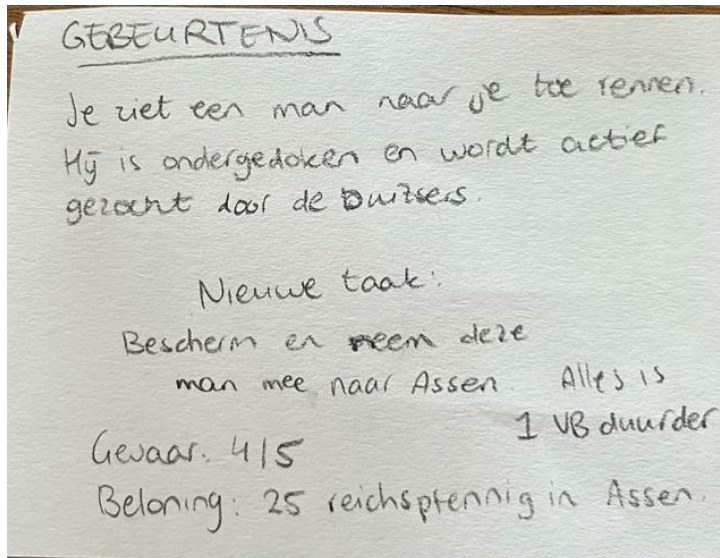 GEBEURTENIS
Je ziet een man naar je toe rennen.
Hij is ondergedoken en wordt actief
gezocht door de Duitsers.
Nieuwe taak:
Bescherm en neem deze
man mee naar Assen.
Alles is
1 VB duurder
Gevaar: 4/5
Beloning: 25 reichspfennig in Assen.